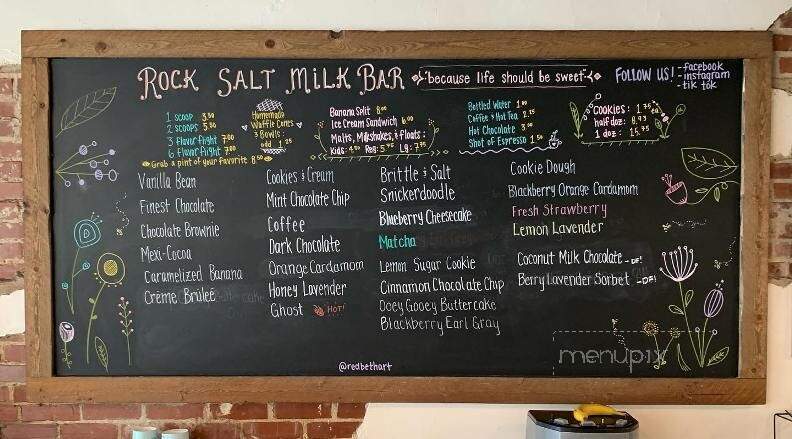 ROCK SALT MILK BAR
"because life should be sweet"
FOLLOW US!
- facebook
- instagram
- tik tok
1 scoop 3.50
2 scoops 5.50
3 flavor flight 7.00
6 flavor flight
Grab a pint of your favorite
Homemade
Waffle Cones
& Bowls:
add 1.25
Banana Split 8.00
Ice Cream Sandwich 6.00
Malts, Milkshakes, & floats:
Kids: Reg: Lg:
Bottled Water
Coffee & Hot Tea 2.25
Hot Chocolate 3.00
Shot of Espresso 1.50
Cookies: 1.75 ea
half doz:
1 doz: 15.75
Vanilla Bean
Finest Chocolate
Chocolate Brownie
Mexi-Cocoa
Caramelized Banana
Crème Brûleé
Cookies & Cream
Mint Chocolate Chip
Coffee
Dark Chocolate
Orange Cardamom
Honey Lavender
Ghost HOT!
Brittle & Salt
Snickerdoodle
Blueberry Cheesecake
Matcha
Lemon Sugar Cookie
Cinnamon Chocolate Chip
Ooey Gooey Buttercake
Blackberry Earl Gray
Cookie Dough
Blackberry Orange Cardamom
Fresh Strawberry
Lemon Lavender
Coconut Milk Chocolate - DF!
Berry Lavender Sorbet - DF!
@redbethart
menupix